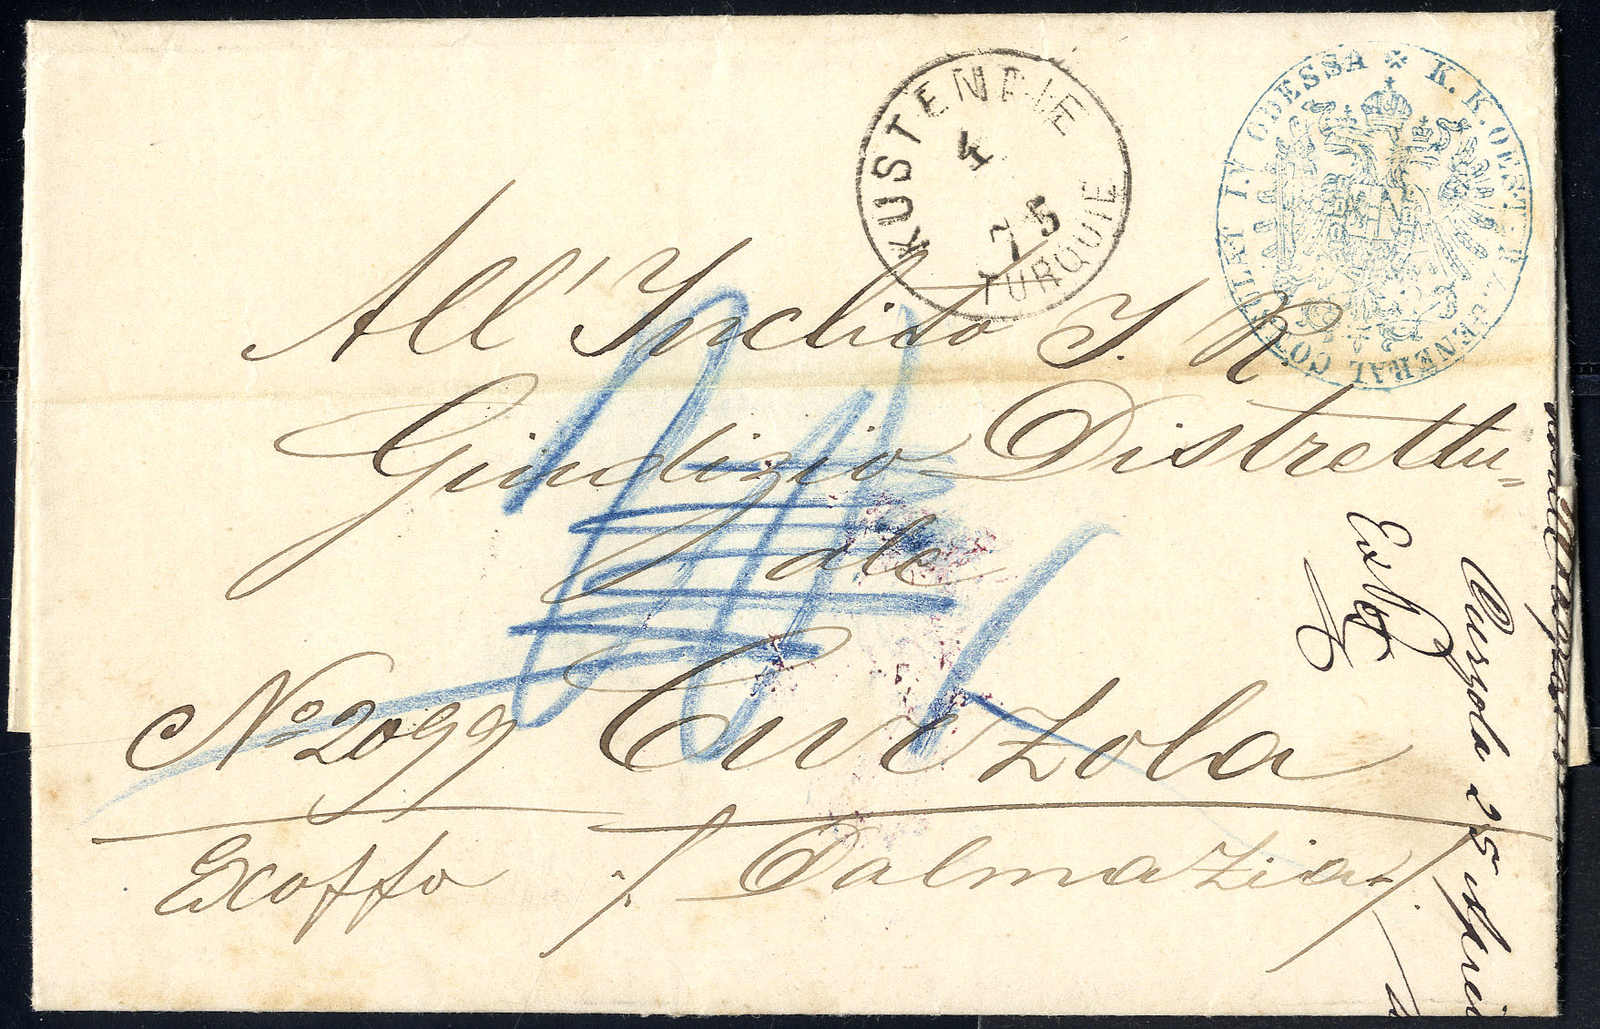 KUSTENDJE
4
7 5
TURQUIE
K. K. OESTERR. GENERAL CONSULAT IN ODESSA
All' Inclito I. R.
Giudizio Distrettu=
ale
N° 2099 Curzola
Exoffo ./. Dalmazia ./.
Ex offo
Curzola 25